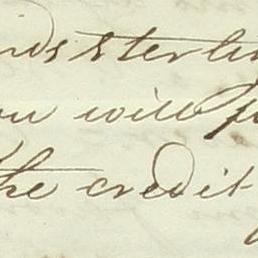 nds sterlin
ou will p
the credit